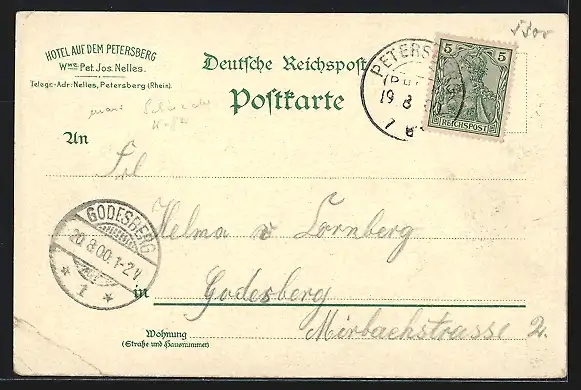 HOTEL AUF DEM PETERSBERG
Wwe. Pet. Jos. Nelles.
Telegr.-Adr: Nelles, Petersberg (Rhein).
Deutsche Reichspost
Postkarte
5 5
REICHSPOST
PETERS
19 8
7 8
An
Frl
Helma v
Godesberg
Mirbachstrasse 2.
in
GODESBERG
20.8.00.1-2N
* 1 *
Wohnung
(Straße und Hausnummer)